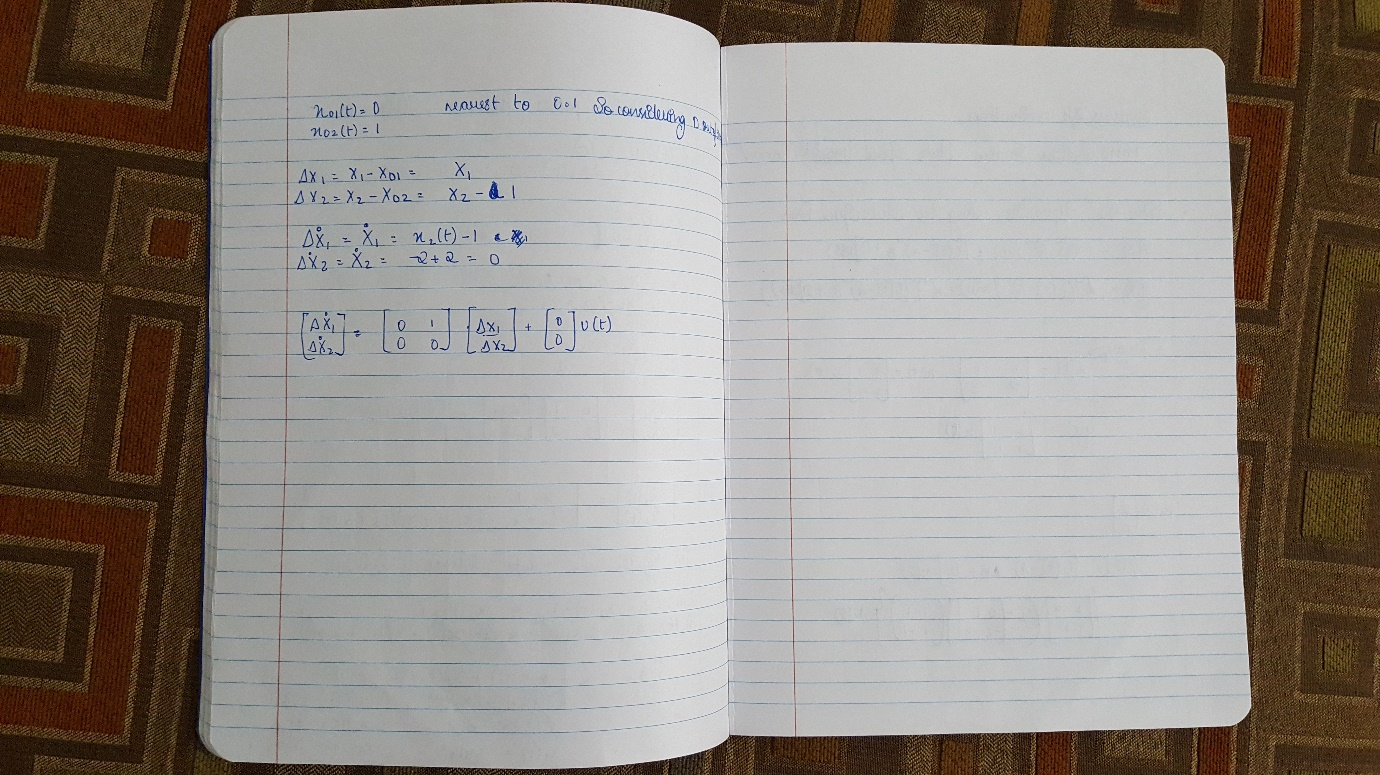 x₀₁(t) = 0 nearest to 0.1 So considering
x₀₂(t) = 1
Δx₁ = x₁ - x₀₁ = x₁
Δx₂ = x₂ - x₀₂ = x₂ - 1
Δẋ₁ = ẋ₁ = x₂(t) - 1
Δẋ₂ = ẋ₂ = -2 + 2 = 0
[Δẋ₁ = [0 1] [Δx₁ + [0 u(t)
Δẋ₂] 0 0] Δx₂] 0]